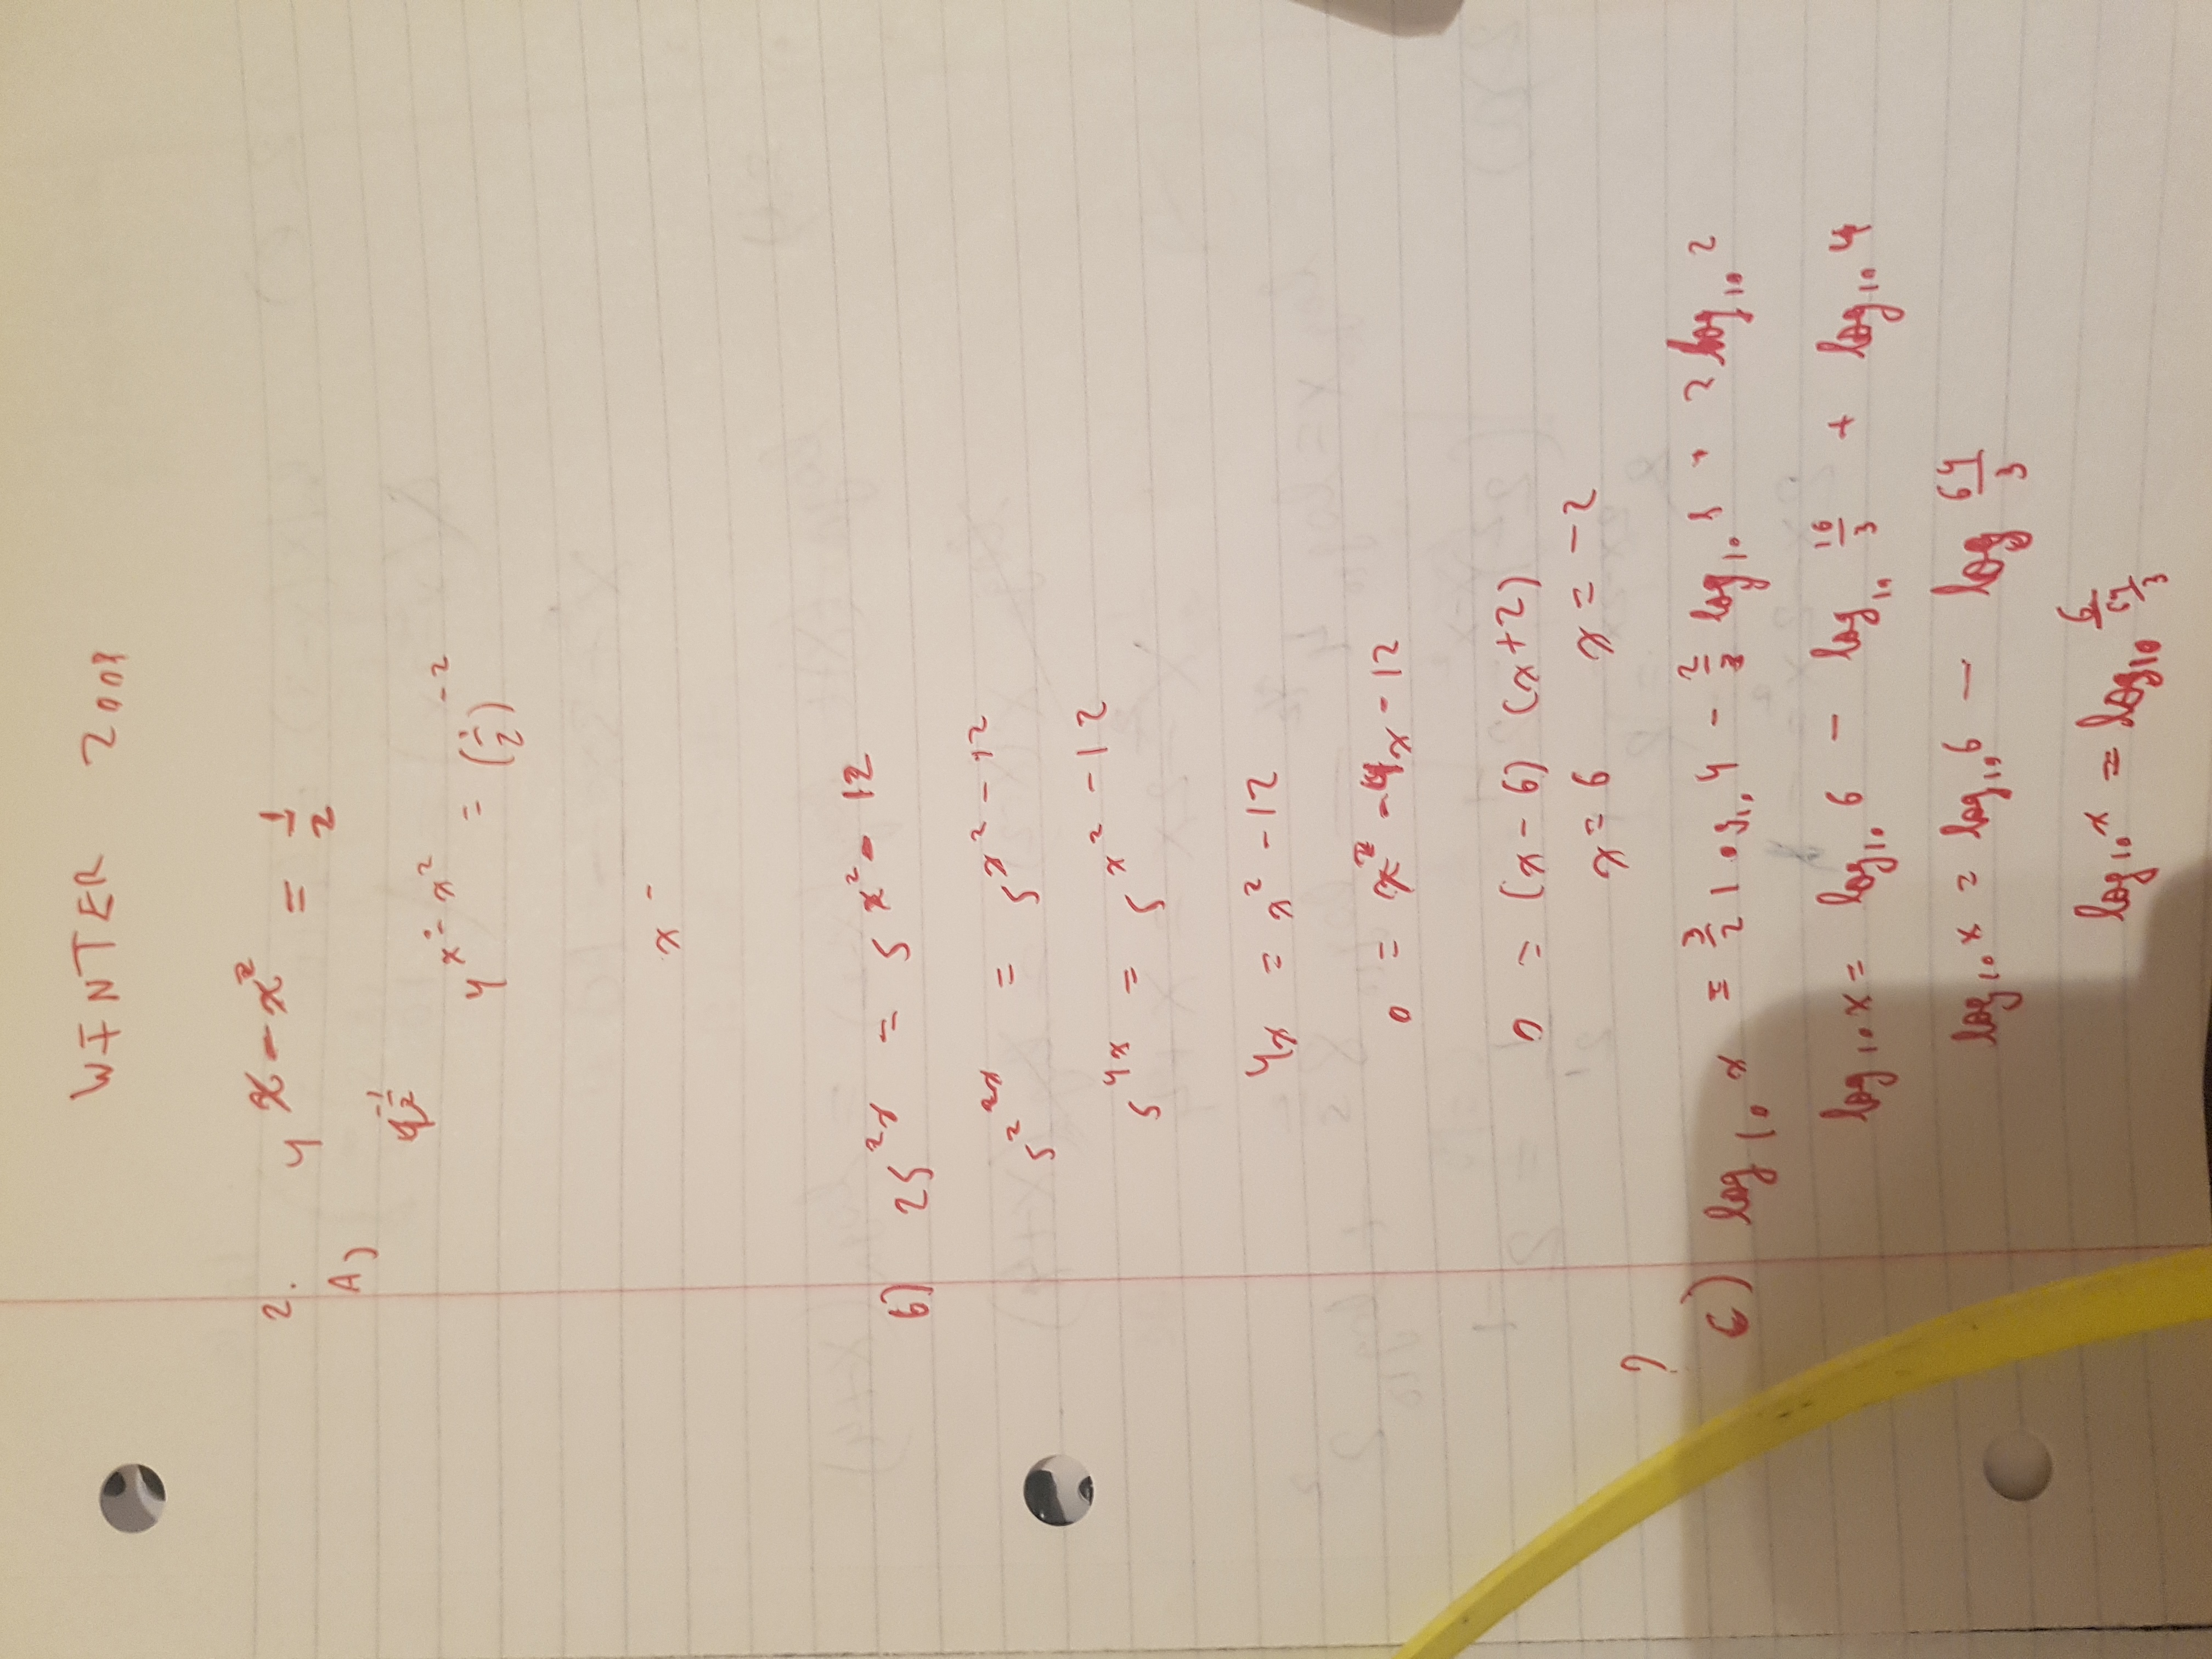 WINTER 2008
2. 4^{x-x^2} = 1/2
A) 4^{-1/2}
4^{x-x^2} = (1/2)^{-2}
x -
b) 25^{2x} = 5^{x^2-12}
5^{2 2x} = 5^{x^2-12}
5^{4x} = 5^{x^2-12}
4x = x^2 - 12
0 = x^2 - 4x - 12
0 = (x-6)(x+2)
x = 6 x = -2
?
c) log10 x = 3/2 log10 4 - 2/3 log10 8 + 2 log10 2
log10 x = log10 6 - log10 16/3 + log10 4
log10 x = log10 6 - log 64/3
log10 x = log10 6/(64/3)